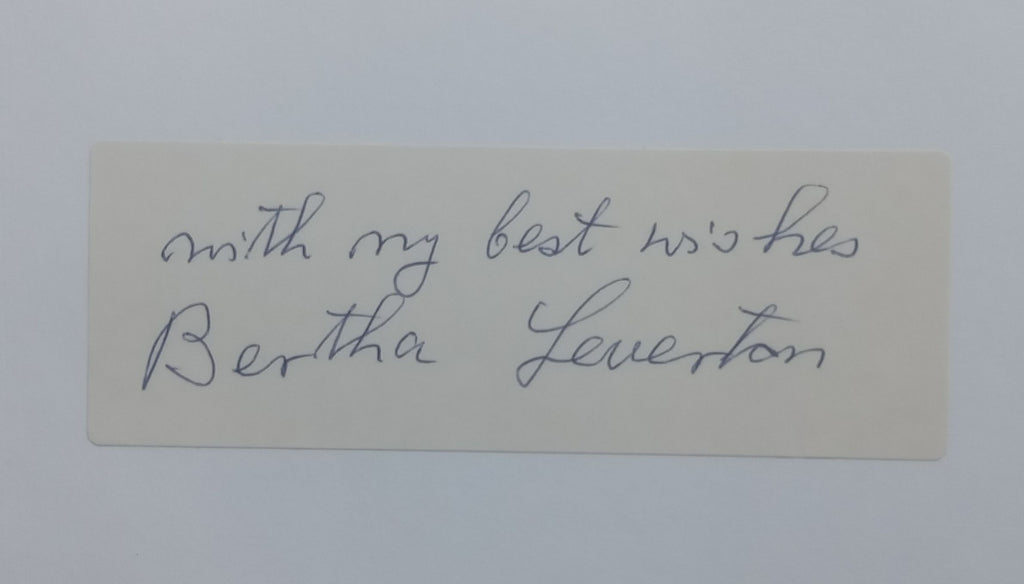 with my best wishes
Bertha Leverton